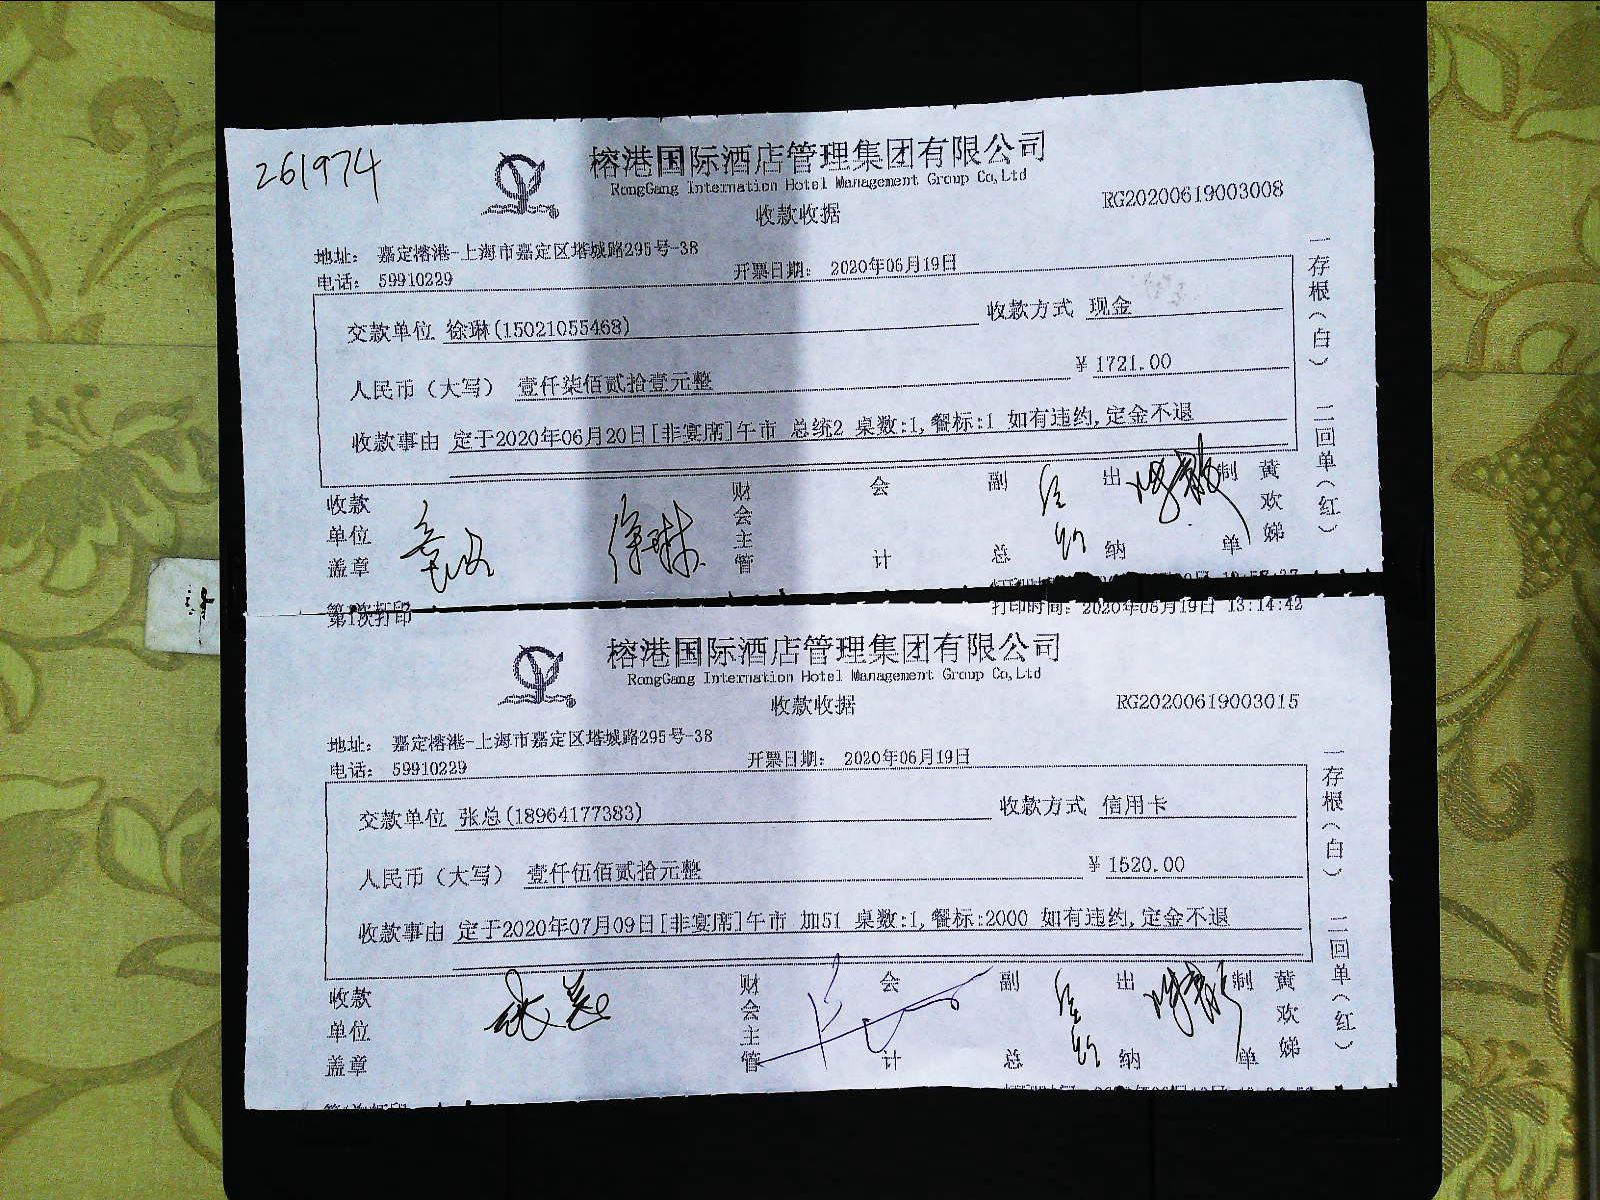 261974
榕港国际酒店管理集团有限公司
RongGang Internation Hotel Management Group Co,Ltd
收款收据
RG20200619003008
地址： 嘉定榕港-上海市嘉定区塔城路295号-38
电话： 59910229
开票日期： 2020年06月19日
交款单位 徐琳(15021055468)
收款方式 现金
人民币（大写） 壹仟柒佰贰拾壹元整
¥ 1721.00
收款事由 定于2020年06月20日[非宴席]午市 总统2 桌数:1,餐标:1 如有违约,定金不退
一存根（白） 二回单（红）
收款单位盖章
徐琳
财会主管
会计
副总
出纳
制单
黄欢娣
第1次打印
打印时间：2020年06月19日 13:14:42
榕港国际酒店管理集团有限公司
RongGang Internation Hotel Management Group Co,Ltd
收款收据
RG20200619003015
地址： 嘉定榕港-上海市嘉定区塔城路295号-38
电话： 59910229
开票日期： 2020年06月19日
交款单位 张总(18964177383)
收款方式 信用卡
人民币（大写） 壹仟伍佰贰拾元整
¥ 1520.00
收款事由 定于2020年07月09日[非宴席]午市 加51 桌数:1,餐标:2000 如有违约,定金不退
一存根（白） 二回单（红）
收款单位盖章
财会主管
会计
副总
出纳
制单
黄欢娣